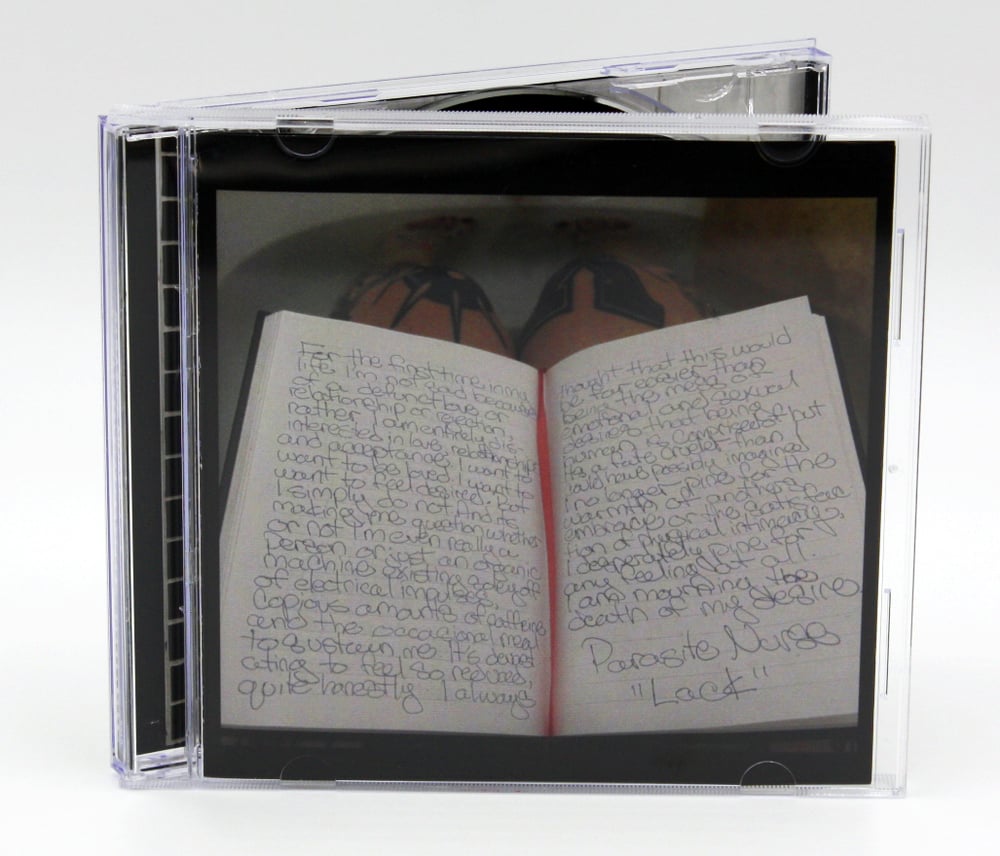 For the first time in my
life I'm not sad because
of a defunct love or
relationship or rejection,
rather I am entirely dis-
interested in love, relationships
and acceptance. I want to
want to be loved. I want to
want to feel desired. But
I simply do not. And its
making me question whether
or not I'm even really a
person or just an organic
machine existing solely of
of electrical impulses,
copious amounts of caffeine
and the occasional meal
to sustain me. It's devast
ating to feel so reduced,
quite honestly I always
thought that this would
be far easier than
being this mess of
emotional and sexual
desires that being
human is comprised of but
its a fate crueler than I
could have possibly imagined
I no longer pine for the
warmth of another's
embrace or the satisfac
tion of physical intimacy
I desperately pine for
any feeling at all.
I am mourning the
death of my desire.
Parasite Nurse
"Lack"